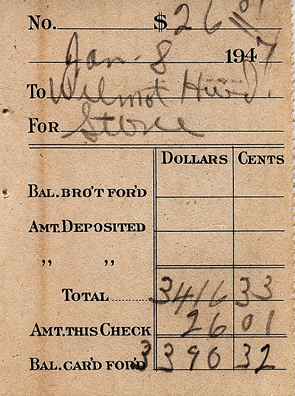 No. $ 26 01
Jan - 8 1947
To Wilmot Hwd.
For Stove
DOLLARS CENTS
BAL. BRO'T FOR'D
AMT. DEPOSITED
„ „
TOTAL 3416 33
AMT. THIS CHECK 26 01
BAL. CAR'D FOR'D 3390 32